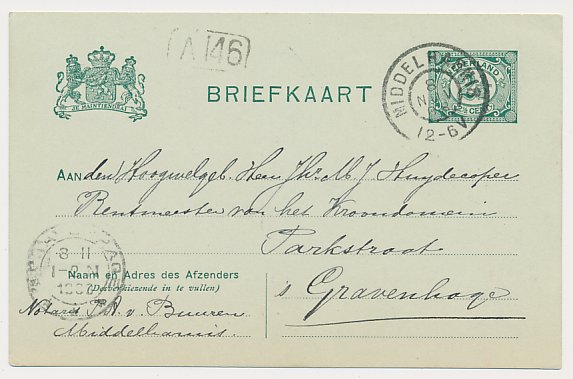 A 46
JE MAINTIENDRAI
BRIEFKAART
NEDERLAND
MIDDELHARNIS
8 NOV
12-6V
AAN den Hoogwelgeb. Heer Jhr. M J Huydecoper
Rentmeester van het Kroondomein
Parkstraat
's Gravenhage
8-11
Naam en Adres des Afzenders
(Desverkiezende in te vullen)
Notaris v. Buuren
Middelharnis